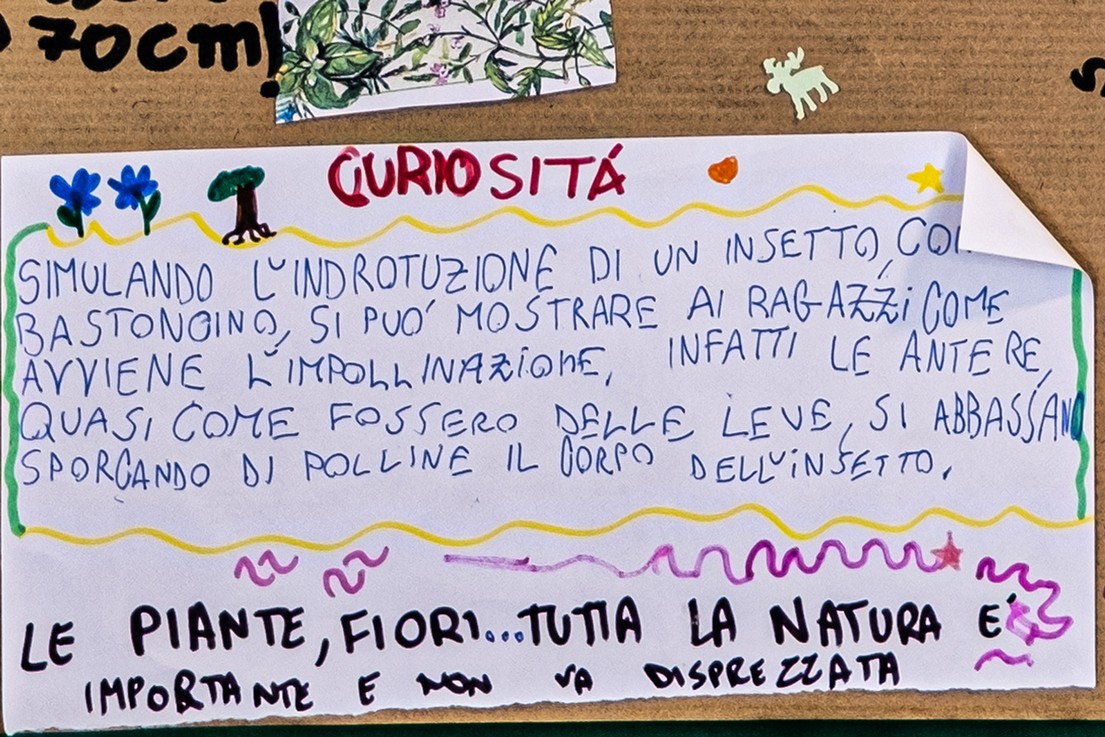 70cm!
CURIOSITÁ
SIMULANDO L'INDROTUZIONE DI UN INSETTO, CON
BASTONCINO, SI PUO' MOSTRARE AI RAGAZZI COME
AVVIENE L'IMPOLLINAZIONE, INFATTI LE ANTERE,
QUASI COME FOSSERO DELLE LEVE, SI ABBASSANO
SPORCANDO DI POLLINE IL CORPO DELL'INSETTO.
LE PIANTE, FIORI...TUTTA LA NATURA E'
IMPORTANTE E NON VA DISPREZZATA